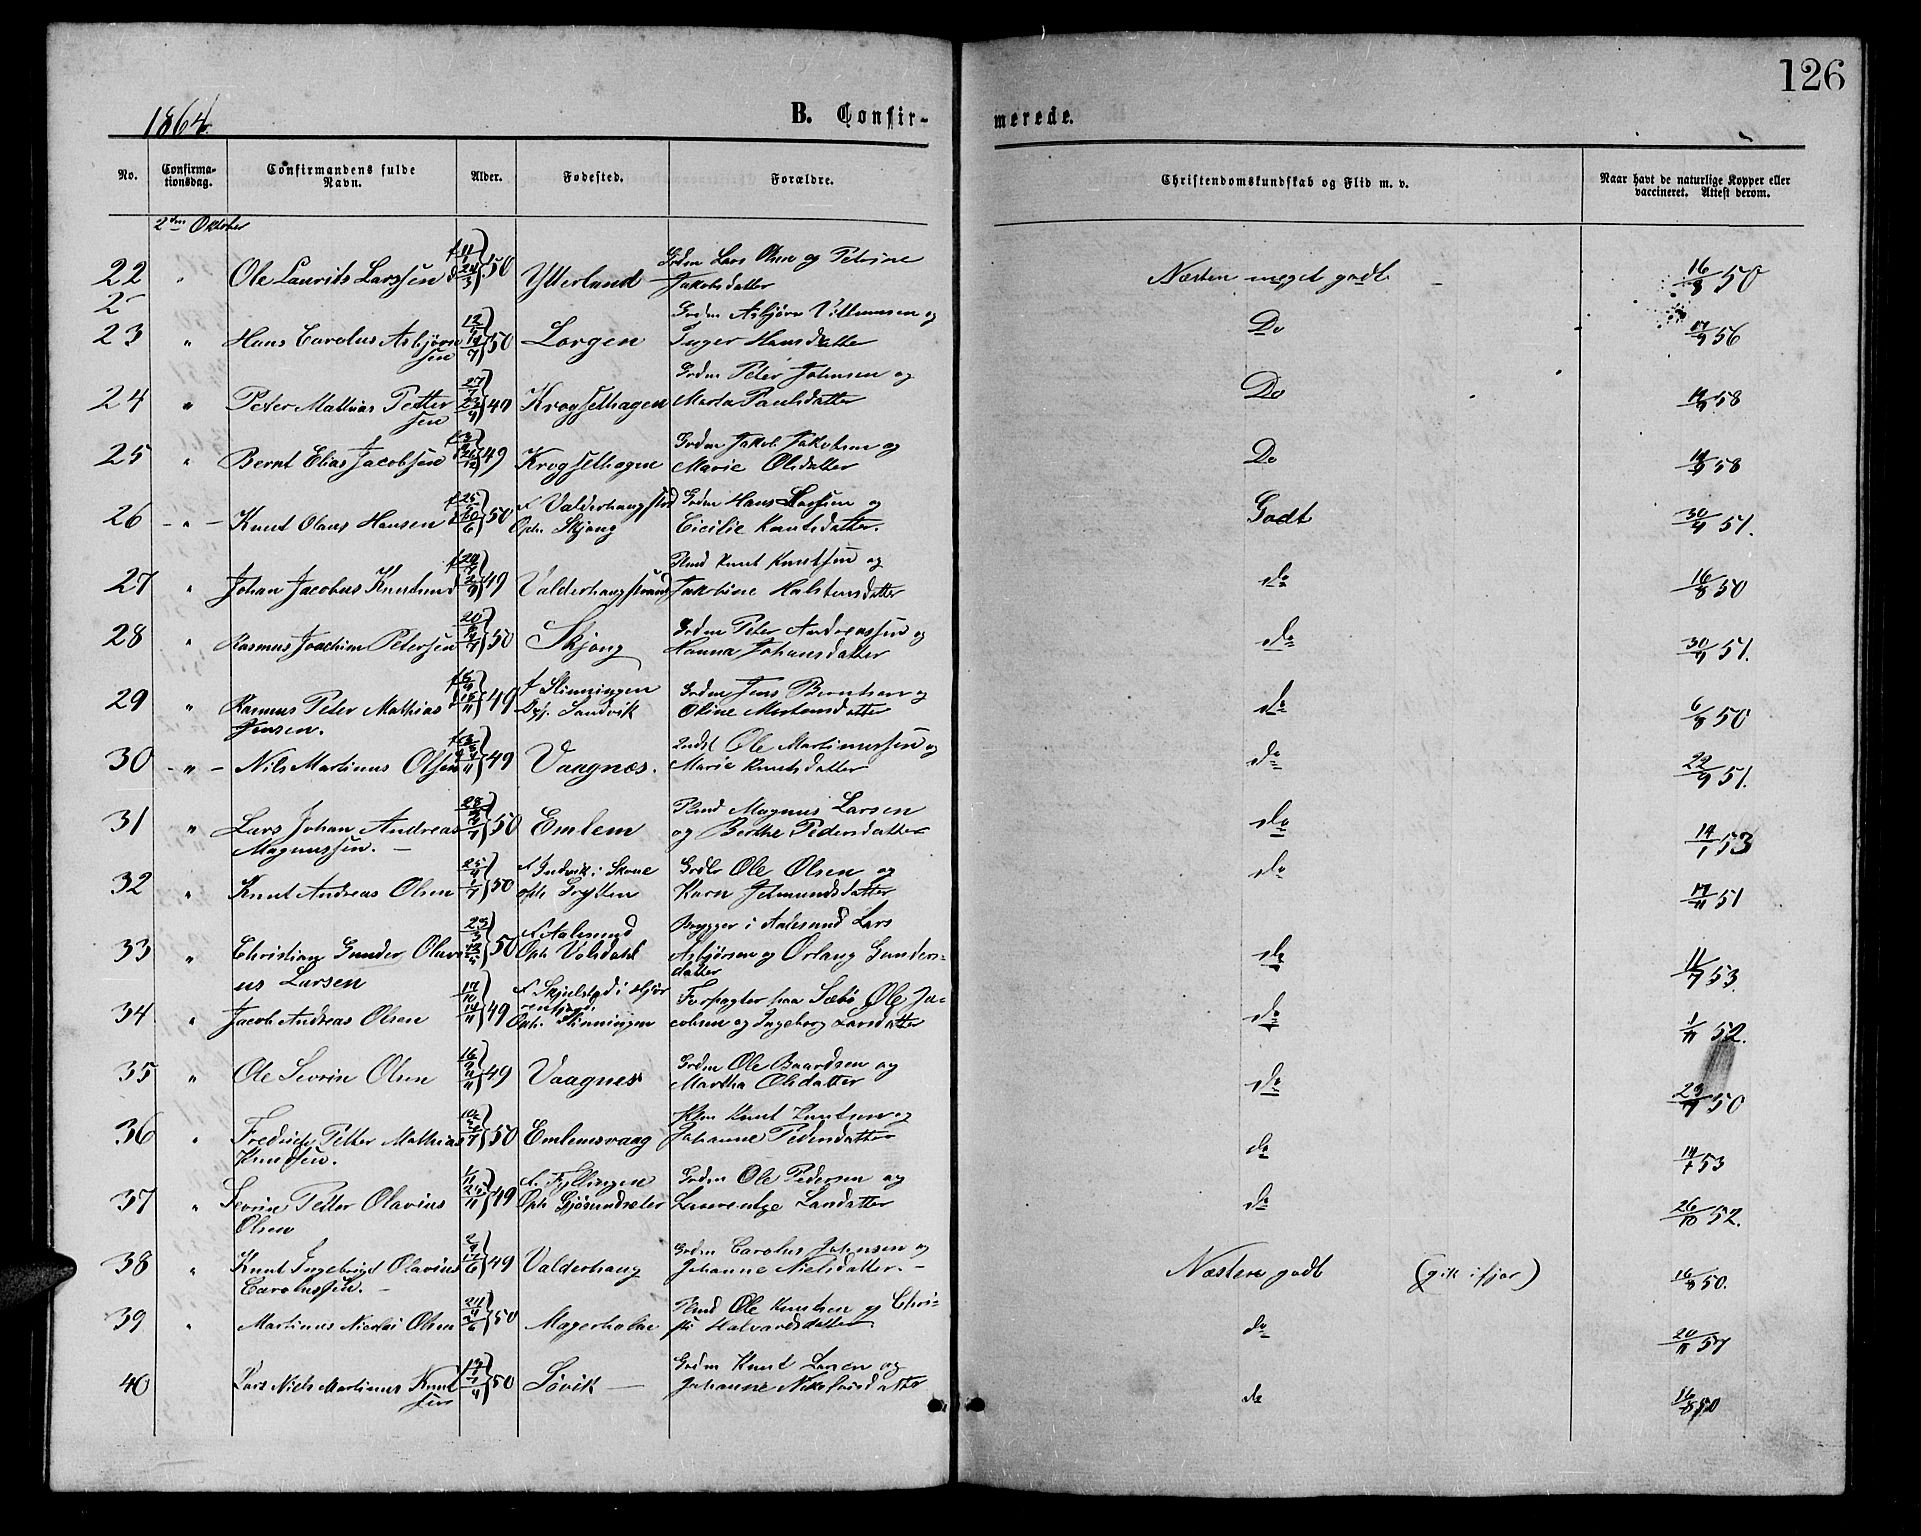 126
1864.
B. Confir-
merede.
No.
Confirma-
tionsdag.
Confirmandens fulde
Navn.
Alder.
Fødested.
Forældre.
Christendomskundskab og Flid m. v.
Naar havt de naturlige Kopper eller
vaccineret. Attest derom.
2den Oktober
22 " Ole Laurits Larssen 50 Ytterland Grdm Lars Olsen og Petrine
Jakobsdatter Næsten meget godt 16/8 50
23 " Hans Carolus Asbjørn
sen 50 Lorgen Grdm Asbjørn Villumsen og
Inger Hansdatter Do 17/9 56
24 " Peter Mathias Petter
sen 49 Krogsethagen Grdm Peter Johnsen og
Marta Paulsdatter Do 58
25 " Bernt Elias Jacobsen 49 Krogsethagen Grdm Jakob Jakobsen og
Marie Olsdatter Do 58
26 - " - Knud Olaus Hansen 50 f Valderhaugstrd
Oph. Skjong Grdm Hans Larssen og
Cicilie Knutsdatter. Godt 30/9 51.
27 " Johan Jacobus Knudsen 49 Valderhaugstrand Plmd Knut Knutsen og
Jakobine Halstensdatter do 16/8 50
28 " Rasmus Joachim Petersen 50 Skjong Grdm Peter Andreassen og
Hanna Johansdatter do 30/9 51.
29 " Rasmus Peter Mathias
Jensen. 49 f Slinningen
Sandvik Grdm Jens Berntsen og
Oline Mortensdatter do 6/8 50
30 - " - Nils Martinus Olsen 49 Vaagnes. Indst Ole Martinussen og
Marie Knutsdatter do 22/9 51.
31 " Lars Johan Andreas
Magnussen. 50 Emlem Plmd Magnus Larsen
og Berthe Pedersdatter do 14/1 53
32 " Knut Andreas Olsen 50 f Indvik i Skone
oph Grytten Grdbr Ole Olsen og
Karn Jetmundsdatter do 17/11 51
33 " Christian Gunder Olavi
us Larsen 50 f Aalesund
Oph Volsdahl Brygger i Aalesund Lars
Asbjørsen og Orlaug Gunders-
datter do 11/7 53.
34 " Jacob Andreas Olsen 49 f Skjelsted i Hjør
renfjord.
Oph. Slinningen Forpagter paa Sæbø Ole Ja-
cobsen og Ingeborg Larsdatter do 1/11 52.
35 " Ole Sevrin Olsen 49 Vaagnes Grdm Ole Baardsen og
Martha Olsdatter do 50
36 " Fredrich Petter Mathias
Knudsen. 50 Emlemsvaag Knut Knutsen og
Johanne Pedersdatter do 53
37 " Sevrin Petter Olavius
Olsen 49 f. Fyllingen
Oph Gjøsundsæter Grdm Ole Pedersen og
Larsdatter do 26/10 52.
38 " Knut Ingebrigt Olavius
Carolussen. 49 Valderhaug Grdm Carolus Johnsen og
Johanne Nielsdatter. Næsten godt (gik i fjor) 16/8 50.
39 " Martinus Nicolai Olsen 50 Magerholm Plmd Ole Knutsen og Chri-
sti Halvardsdatter do 20/11 57
40 Lars Niels Martinus Knut
sen 50 Søvik Grdm Knut Larsen og
Johanne Nikolaisdatter do 16/8 50